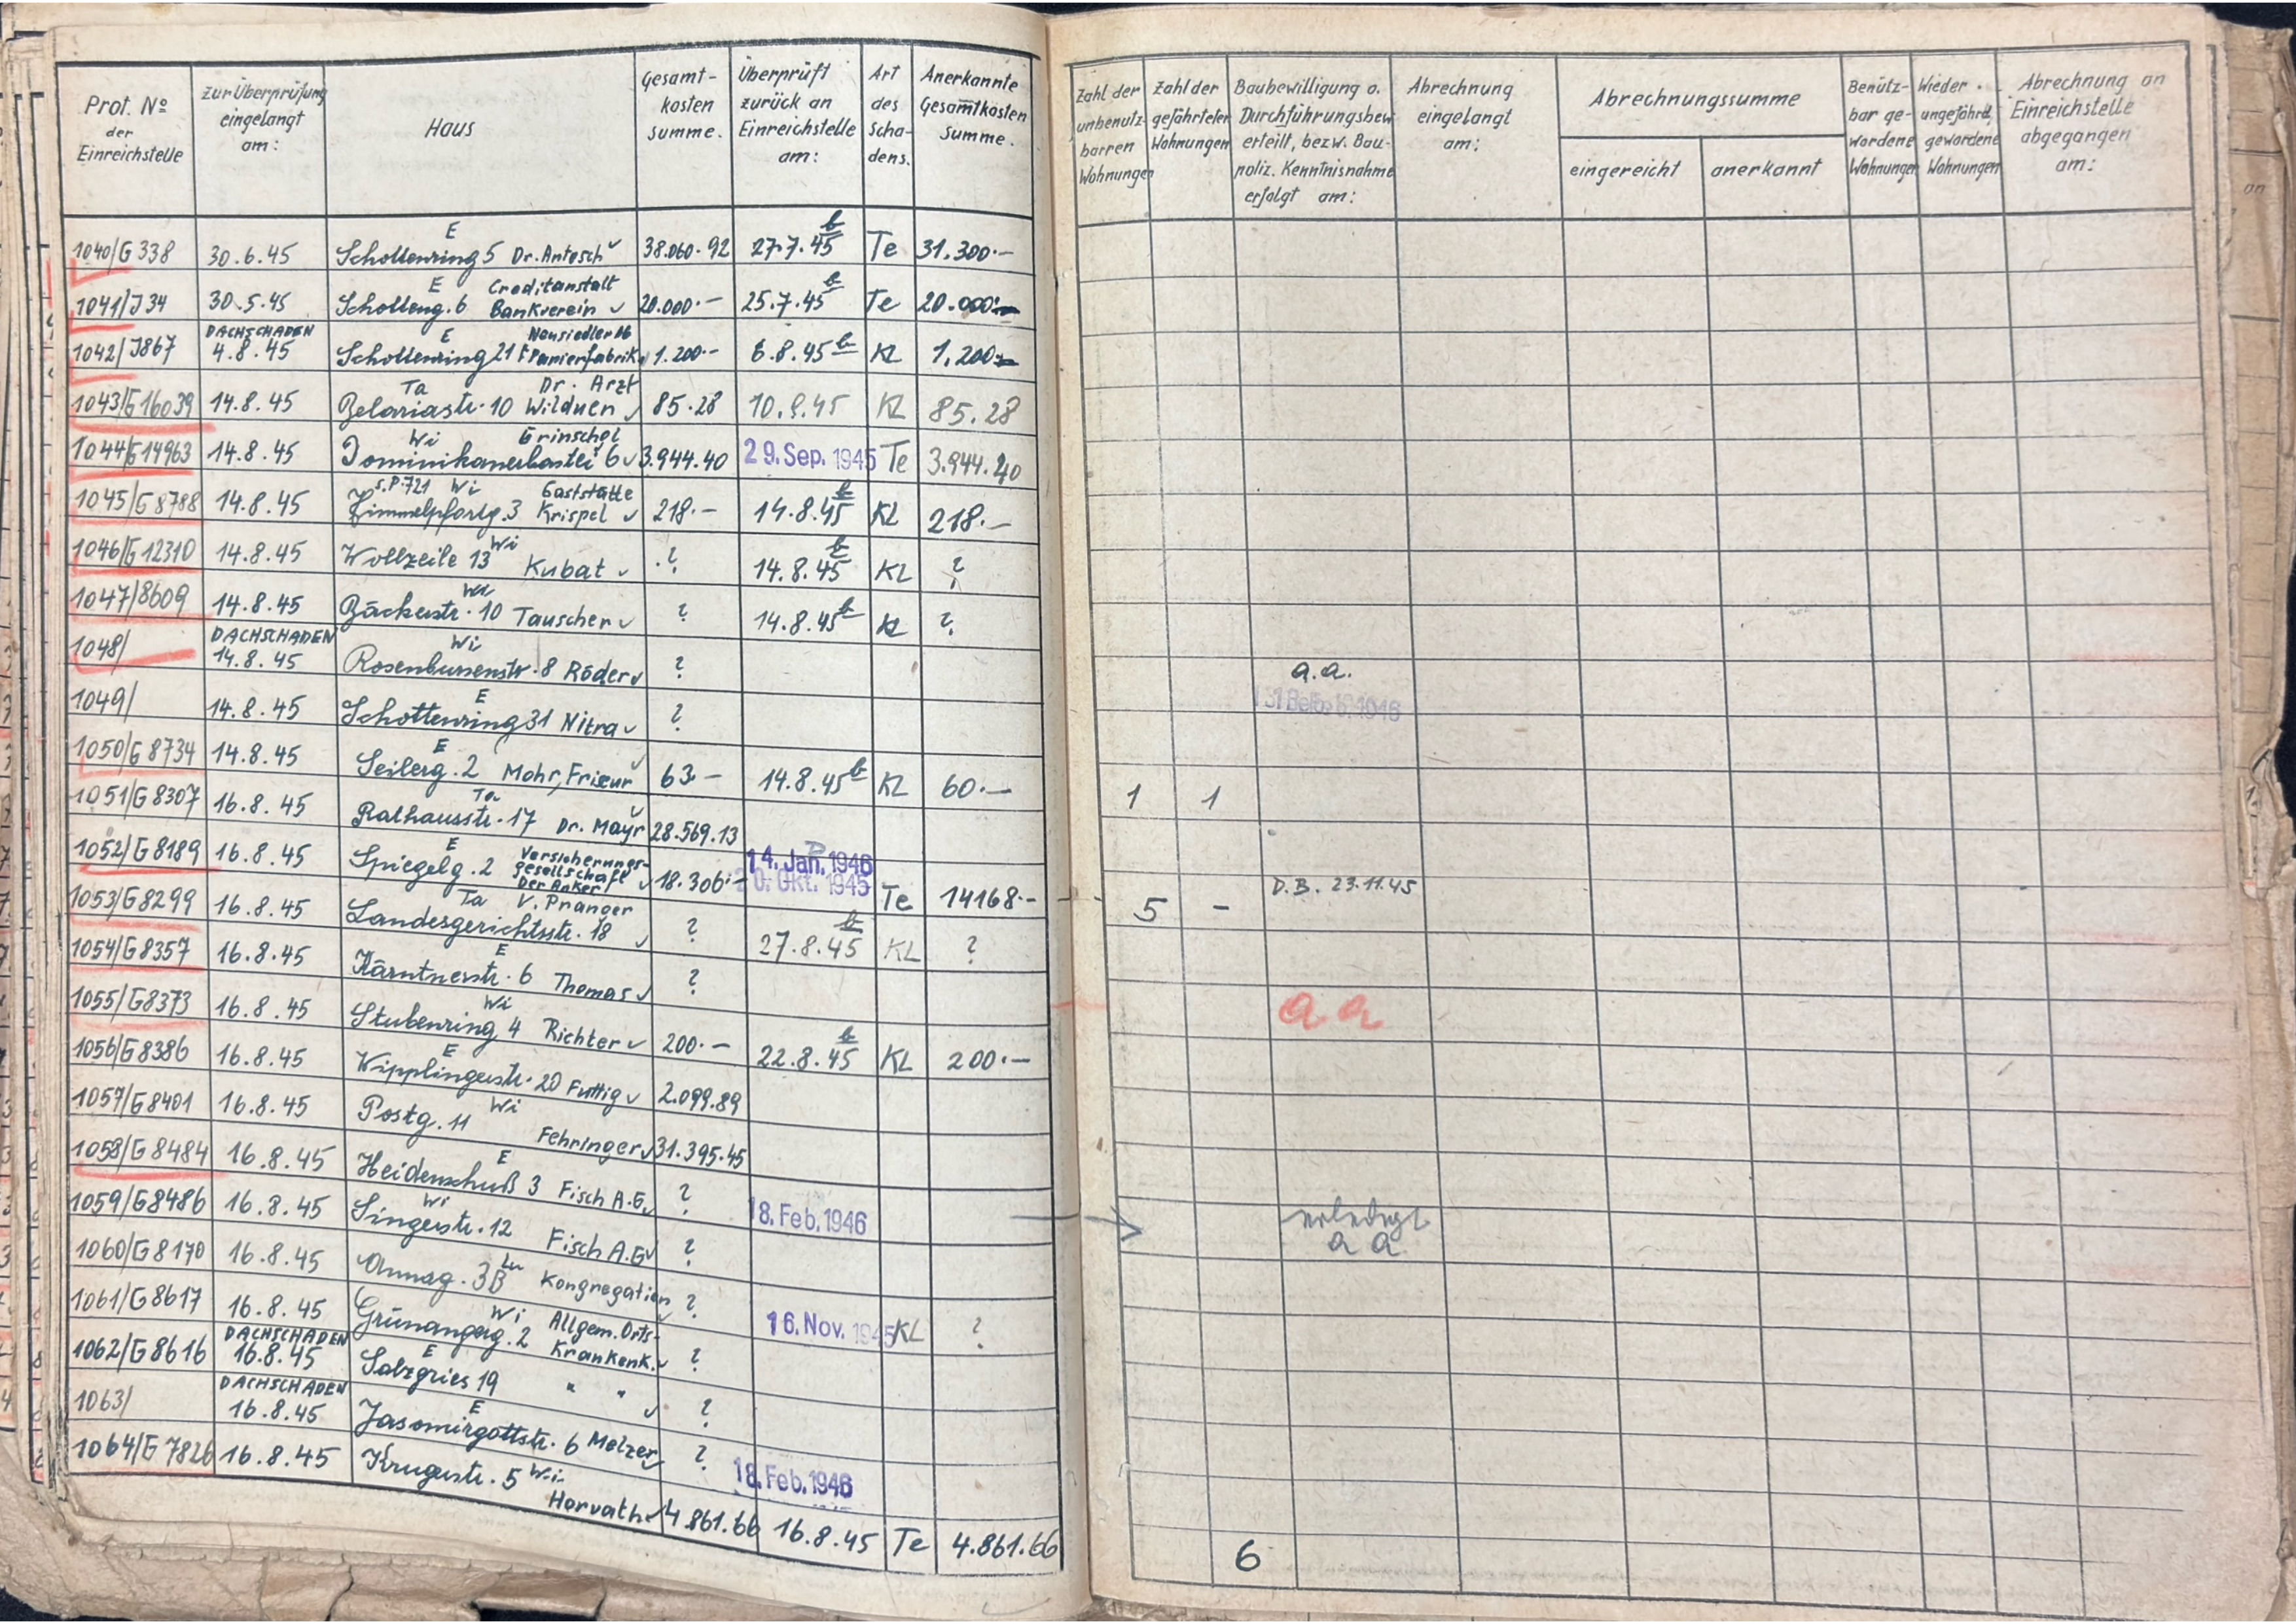 Prot. Nº der Einreichstelle | zur Überprüfung eingelangt am: | Haus | Gesamt-kosten summe. | Überprüft zurück an Einreichstelle am: | Art des Scha-dens. | Anerkannte Gesamtkosten Summe. | Zahl der unbenutz-barren Wohnungen | Zahl der gefährteter Wohnungen | Baubewilligung o. Durchführungsbew. erteilt, bezw. Bau-poliz. Kenntnisnahme erfolgt am: | Abrechnung eingelangt am: | Abrechnungssumme eingereicht | anerkannt | Benütz-bar ge-wordene Wohnungen | Wieder ungefährd. gewordene Wohnungen | Abrechnung an Einreichstelle abgegangen am:
1040/G338 30.6.45 E Schottenring 5 Dr. Antosch 38.060.92 27.7.45 Te 31.300.-
1041/J34 30.5.45 E Schotteng. 6 Creditanstalt Bankverein 20.000.- 25.7.45 Te 20.000.-
1042/J867 DACHSCHADEN 4.8.45 E Schottenring 21 Neusiedler AG f. Papierfabrik. 1.200.- 6.8.45 KL 1.200.-
1043/G16039 14.8.45 Ta Belariastr. 10 Dr. Arzt Wilduen 85.28 10.9.45 KL 85.28
1044/G14963 14.8.45 Wi Dominikanerbastei 6 Grinschgl 3.944.40 29. Sep. 1945 Te 3.944.40
1045/G8788 14.8.45 s.P.721 Wi Himmelpfortg. 3 Gaststätte Krispel 218.- 14.8.45 KL 218.-
1046/G12310 14.8.45 Wollzeile 13 Wi Kubat ? 14.8.45 KL ?
1047/8609 14.8.45 Wi Bäckerstr. 10 Tauscher ? 14.8.45 KL ?
1048/ DACHSCHADEN 14.8.45 Wi Rosenbursenstr. 8 Röder ? a.a.
1049/ 14.8.45 E Schottenring 31 Nitra ?
1050/G8734 14.8.45 E Seilerg. 2 Mohr, Friseur 63.- 14.8.45 KL 60.-
1051/G8307 16.8.45 Ta Rathausstr. 17 Dr. Mayr 28.569.13 1 1
1052/G8189 16.8.45 E Spiegelg. 2 Versicherungs-gesellschaft Der Anker 18.306.- 14. Jan. 1946 20. Okt. 1945 Te 14168.- 5 - D.B. 23.11.45
1053/G8299 16.8.45 Ta V. Pranger Landesgerichtsstr. 18 ? 27.8.45 KL ?
1054/G8357 16.8.45 E Kärntnerstr. 6 Thomas ? a a
1055/G8373 16.8.45 Wi Stubenring 4 Richter 200.- 22.8.45 KL 200.-
1056/G8386 16.8.45 E Wipplingerstr. 20 Futtig 2.099.89
1057/G8401 16.8.45 Postg. 11 Wi Fehringer 31.395.45
1058/G8484 16.8.45 E Heidenschuß 3 Fisch A.G. ? 18. Feb. 1946 erledigt a a
1059/G8486 16.8.45 Wi Singerstr. 12 Fisch A.G. ?
1060/G8170 16.8.45 Annag. 3B Kongregation ?
1061/G8617 16.8.45 Wi Grünangerg. 2 Allgem. Orts-Krankenk. ? 16. Nov. 1945 KL ?
1062/G8616 DACHSCHADEN 16.8.45 E Salzgries 19 " " ?
1063/ DACHSCHADEN 16.8.45 E Jasomirgottstr. 6 Melzer ? 18. Feb. 1946
1064/G7826 16.8.45 Krugerstr. 5 Wi Horvath 4.861.66 16.8.45 Te 4.861.66
6